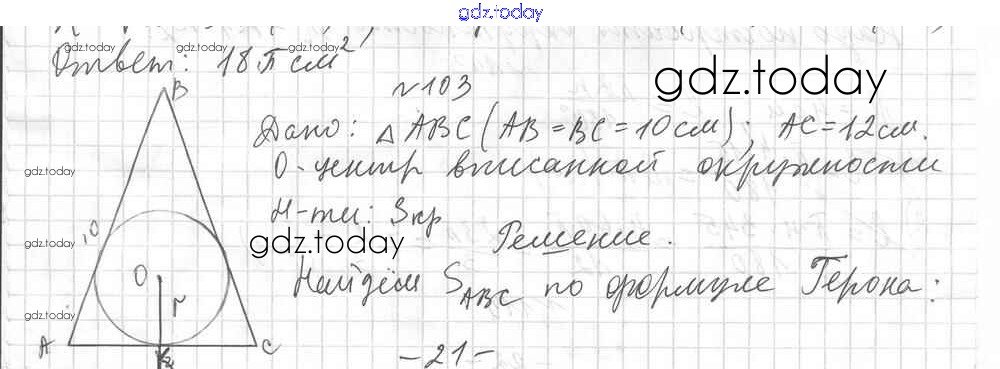 gdz.today
gdz.today gdz.today gdz.today
Ответ: 18π см²
№103
gdz.today
B
Дано: △ ABC (AB = BC = 10 см); AC = 12 см.
gdz.today
O - центр вписанной окружности
Н-ти: Sкр
10
gdz.today
gdz.today
Решение.
O
r
Найдём S ABC по формуле Герона:
gdz.today
A
C
- 21 -